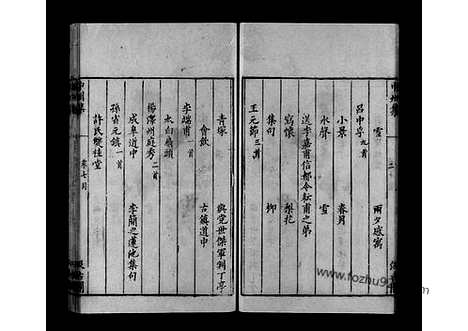 雪　雨夕感寓
呂申孚九首
小景　春月
水聲　雪
送李嘉甫信都令耘甫之弟
寫懷　梨花
集句　柳
王元節三首
青塚　與党世傑軍判丁亭
會飲　古鎮道中
李端甫一首
太白扇頭
楊澤州庭秀二首
成皐道中　李簡之蓮池集句
孫省元鎮一首
許氏雙桂堂
卷七目
www.fozhu9